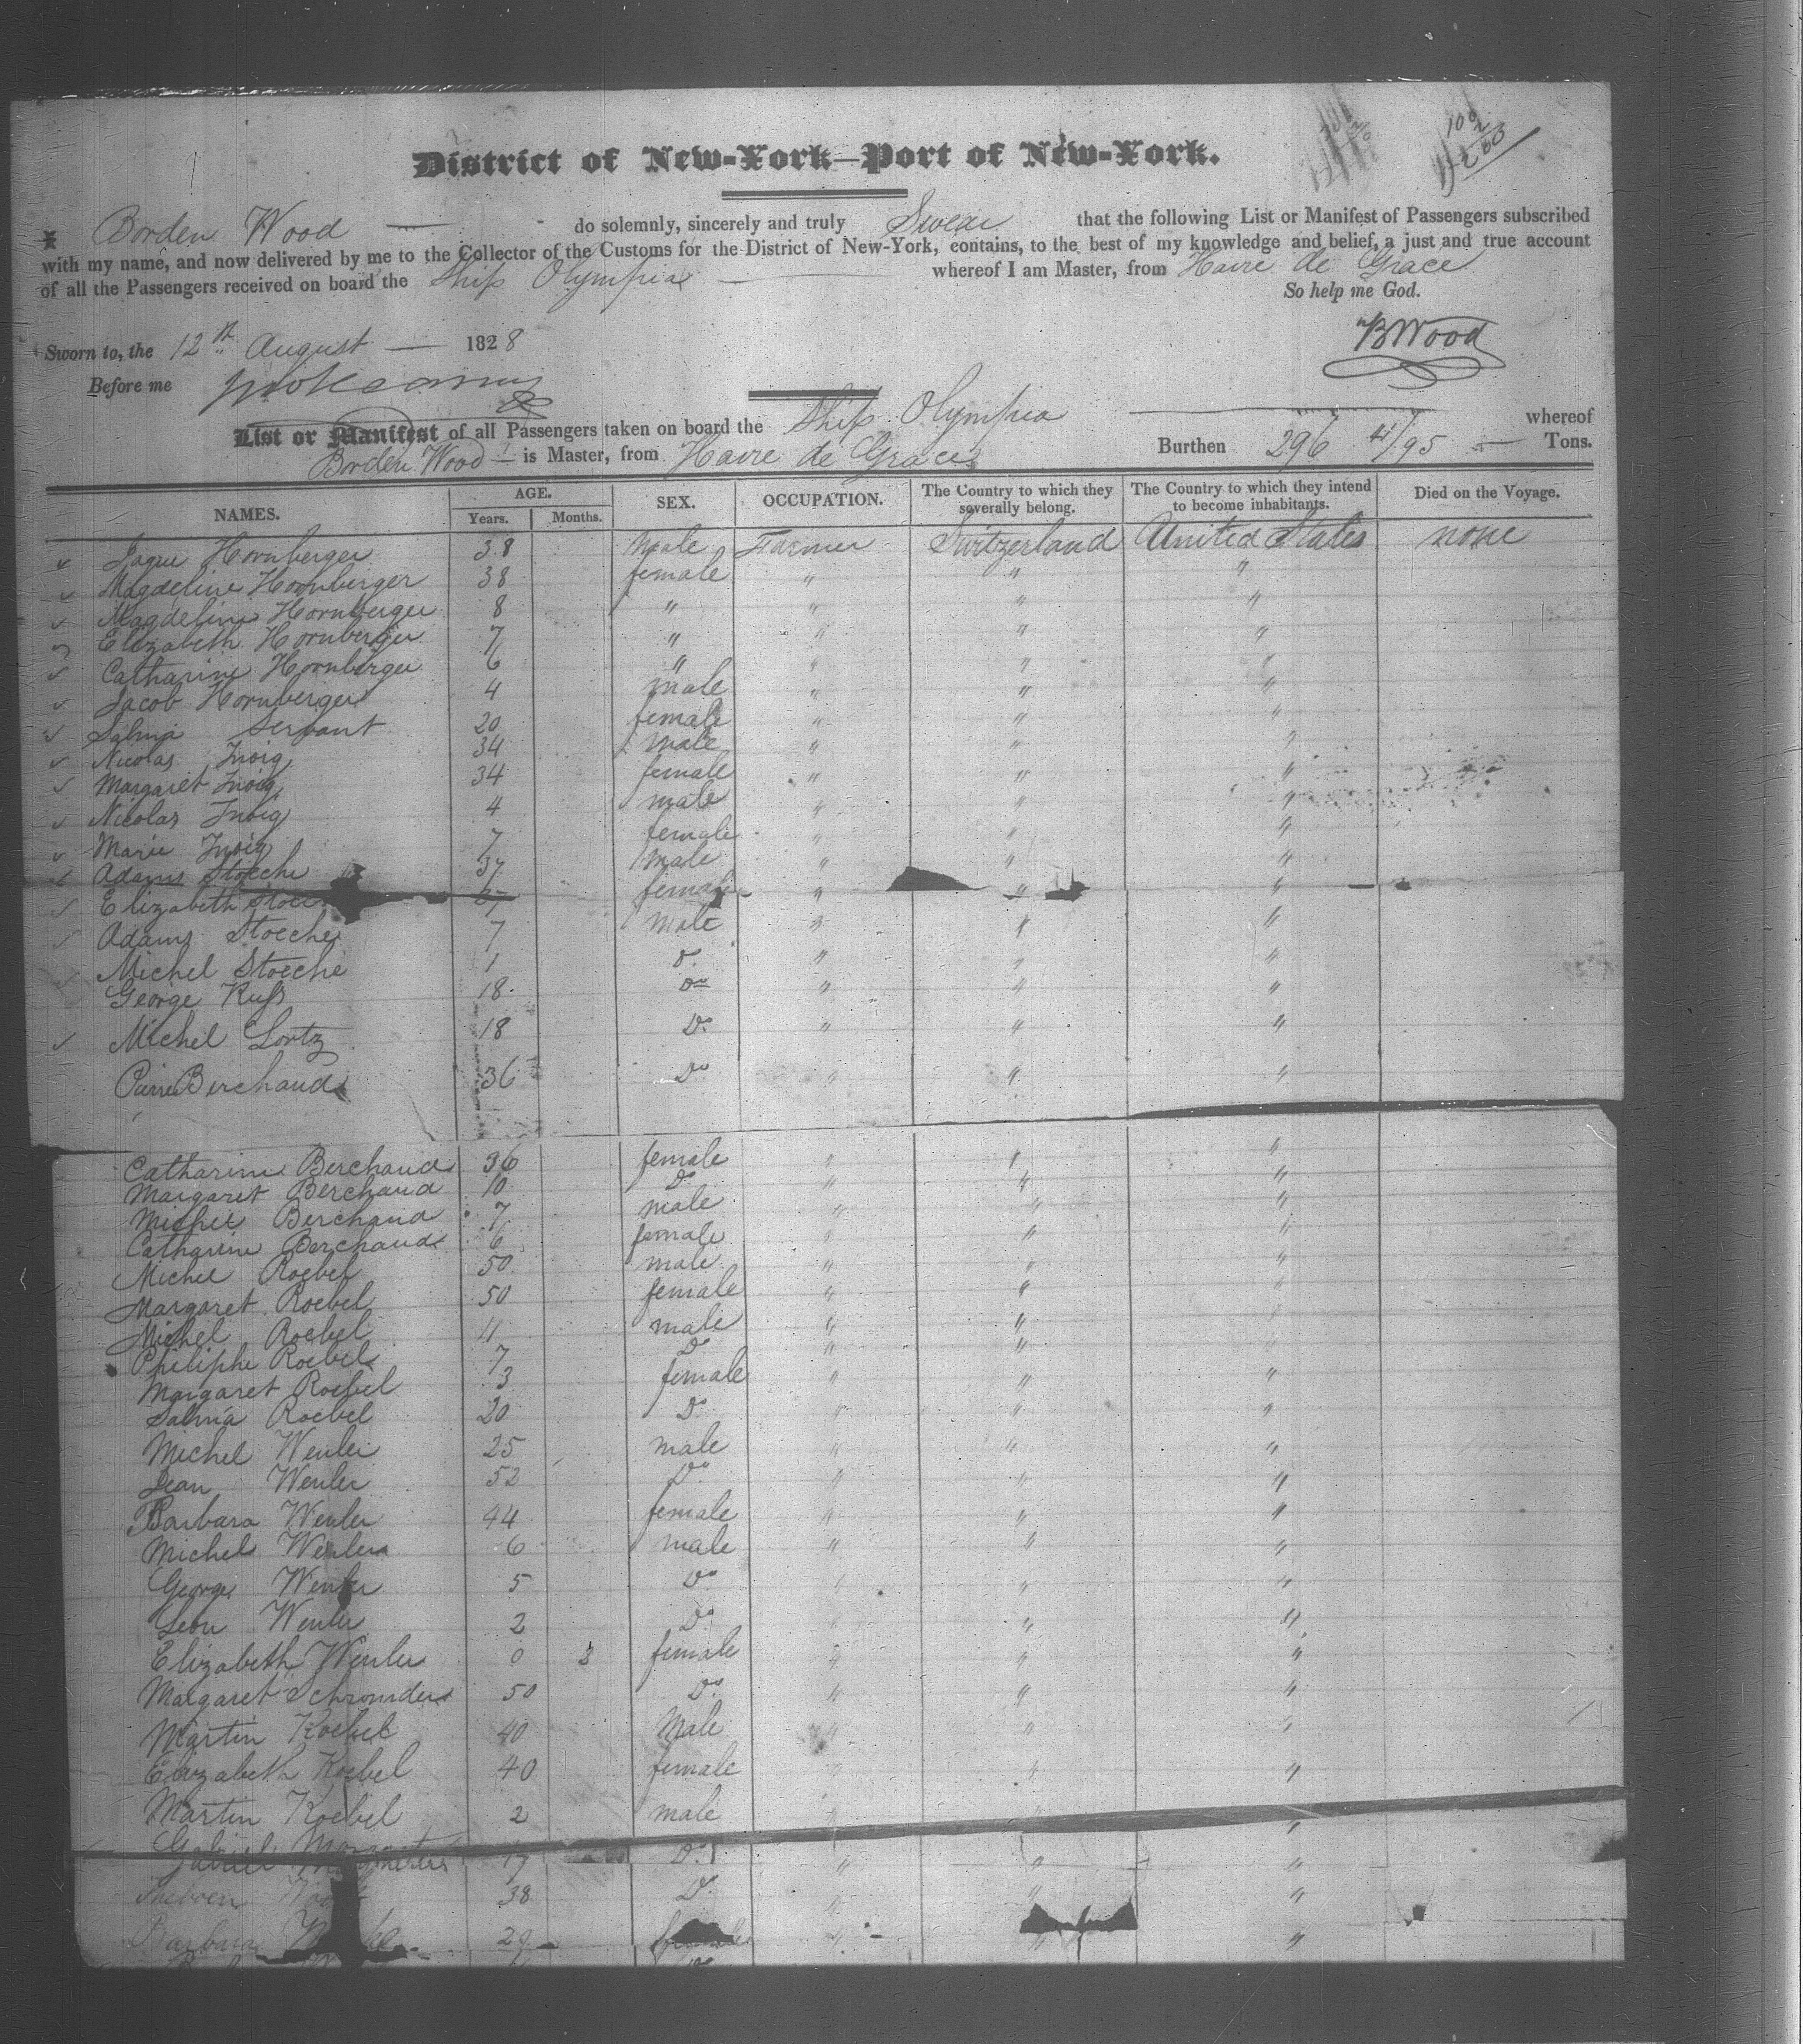 District of New-York—Port of New-York.
I Borden Wood do solemnly, sincerely and truly Swear that the following List or Manifest of Passengers subscribed
with my name, and now delivered by me to the Collector of the Customs for the District of New-York, contains, to the best of my knowledge and belief, a just and true account
of all the Passengers received on board the Ship Olympia whereof I am Master, from Havre de Grace
So help me God.
Sworn to, the 12th August 1828
BWood
Before me
List or Manifest of all Passengers taken on board the Ship Olympia whereof
Borden Wood is Master, from Havre de Grace Burthen 296 41/95 Tons.
NAMES. AGE. Years. Months. SEX. OCCUPATION. The Country to which they severally belong. The Country to which they intend to become inhabitants. Died on the Voyage.
Jaque Hornberger 38 Male Farmer Switzerland United States none
Magdeline Hornberger 38 female " " "
Magdeline Hornberger 8 " " " "
Elizabeth Hornberger 7 " " " "
Catharine Hornberger 6 " " " "
Jacob Hornberger 4 male " " "
Salmia Servant 20 female " " "
Nicolas 34 male " " "
Margaret 34 female " " "
Nicolas 4 male " " "
Marie 7 female " " "
Adams Stoeche 37 male " " "
Elizabeth female " " "
Adams Stoeche 7 male " " "
Michel Stoeche 1 Do " " "
George Russ 18 Do " " "
Michel Lortz 18 Do " " "
Pierre Berchaud 36 Do " " "
Catharine Berchaud 36 female " " "
Margaret Berchaud 10 Do " " "
Michel Berchaud 7 male " " "
Catharine Berchaud 6 female " " "
Michel Roebel 50 male " " "
Margaret Roebel 50 female " " "
Michel Roebel 11 male " " "
Philiphe Roebel 7 Do " " "
Margaret Roebel 3 female " " "
Salmia Roebel 20 Do " " "
Michel Wenler 25 male " " "
Jean Wenler 52 Do " " "
Barbara Wenler 44 female " " "
Michel Wenler 6 male " " "
George Wenler 5 Do " " "
Leon Wenler 2 Do " " "
Elizabeth Wenler 0 3 female " " "
Margaret Schronider 50 Do " " "
Martin Koebel 40 Male " " "
Elizabeth Koebel 40 female " " "
Martin Koebel 2 male " " "
Gabriel 17 Do " " "
38 Do " " "
Barbara 29 female " " "